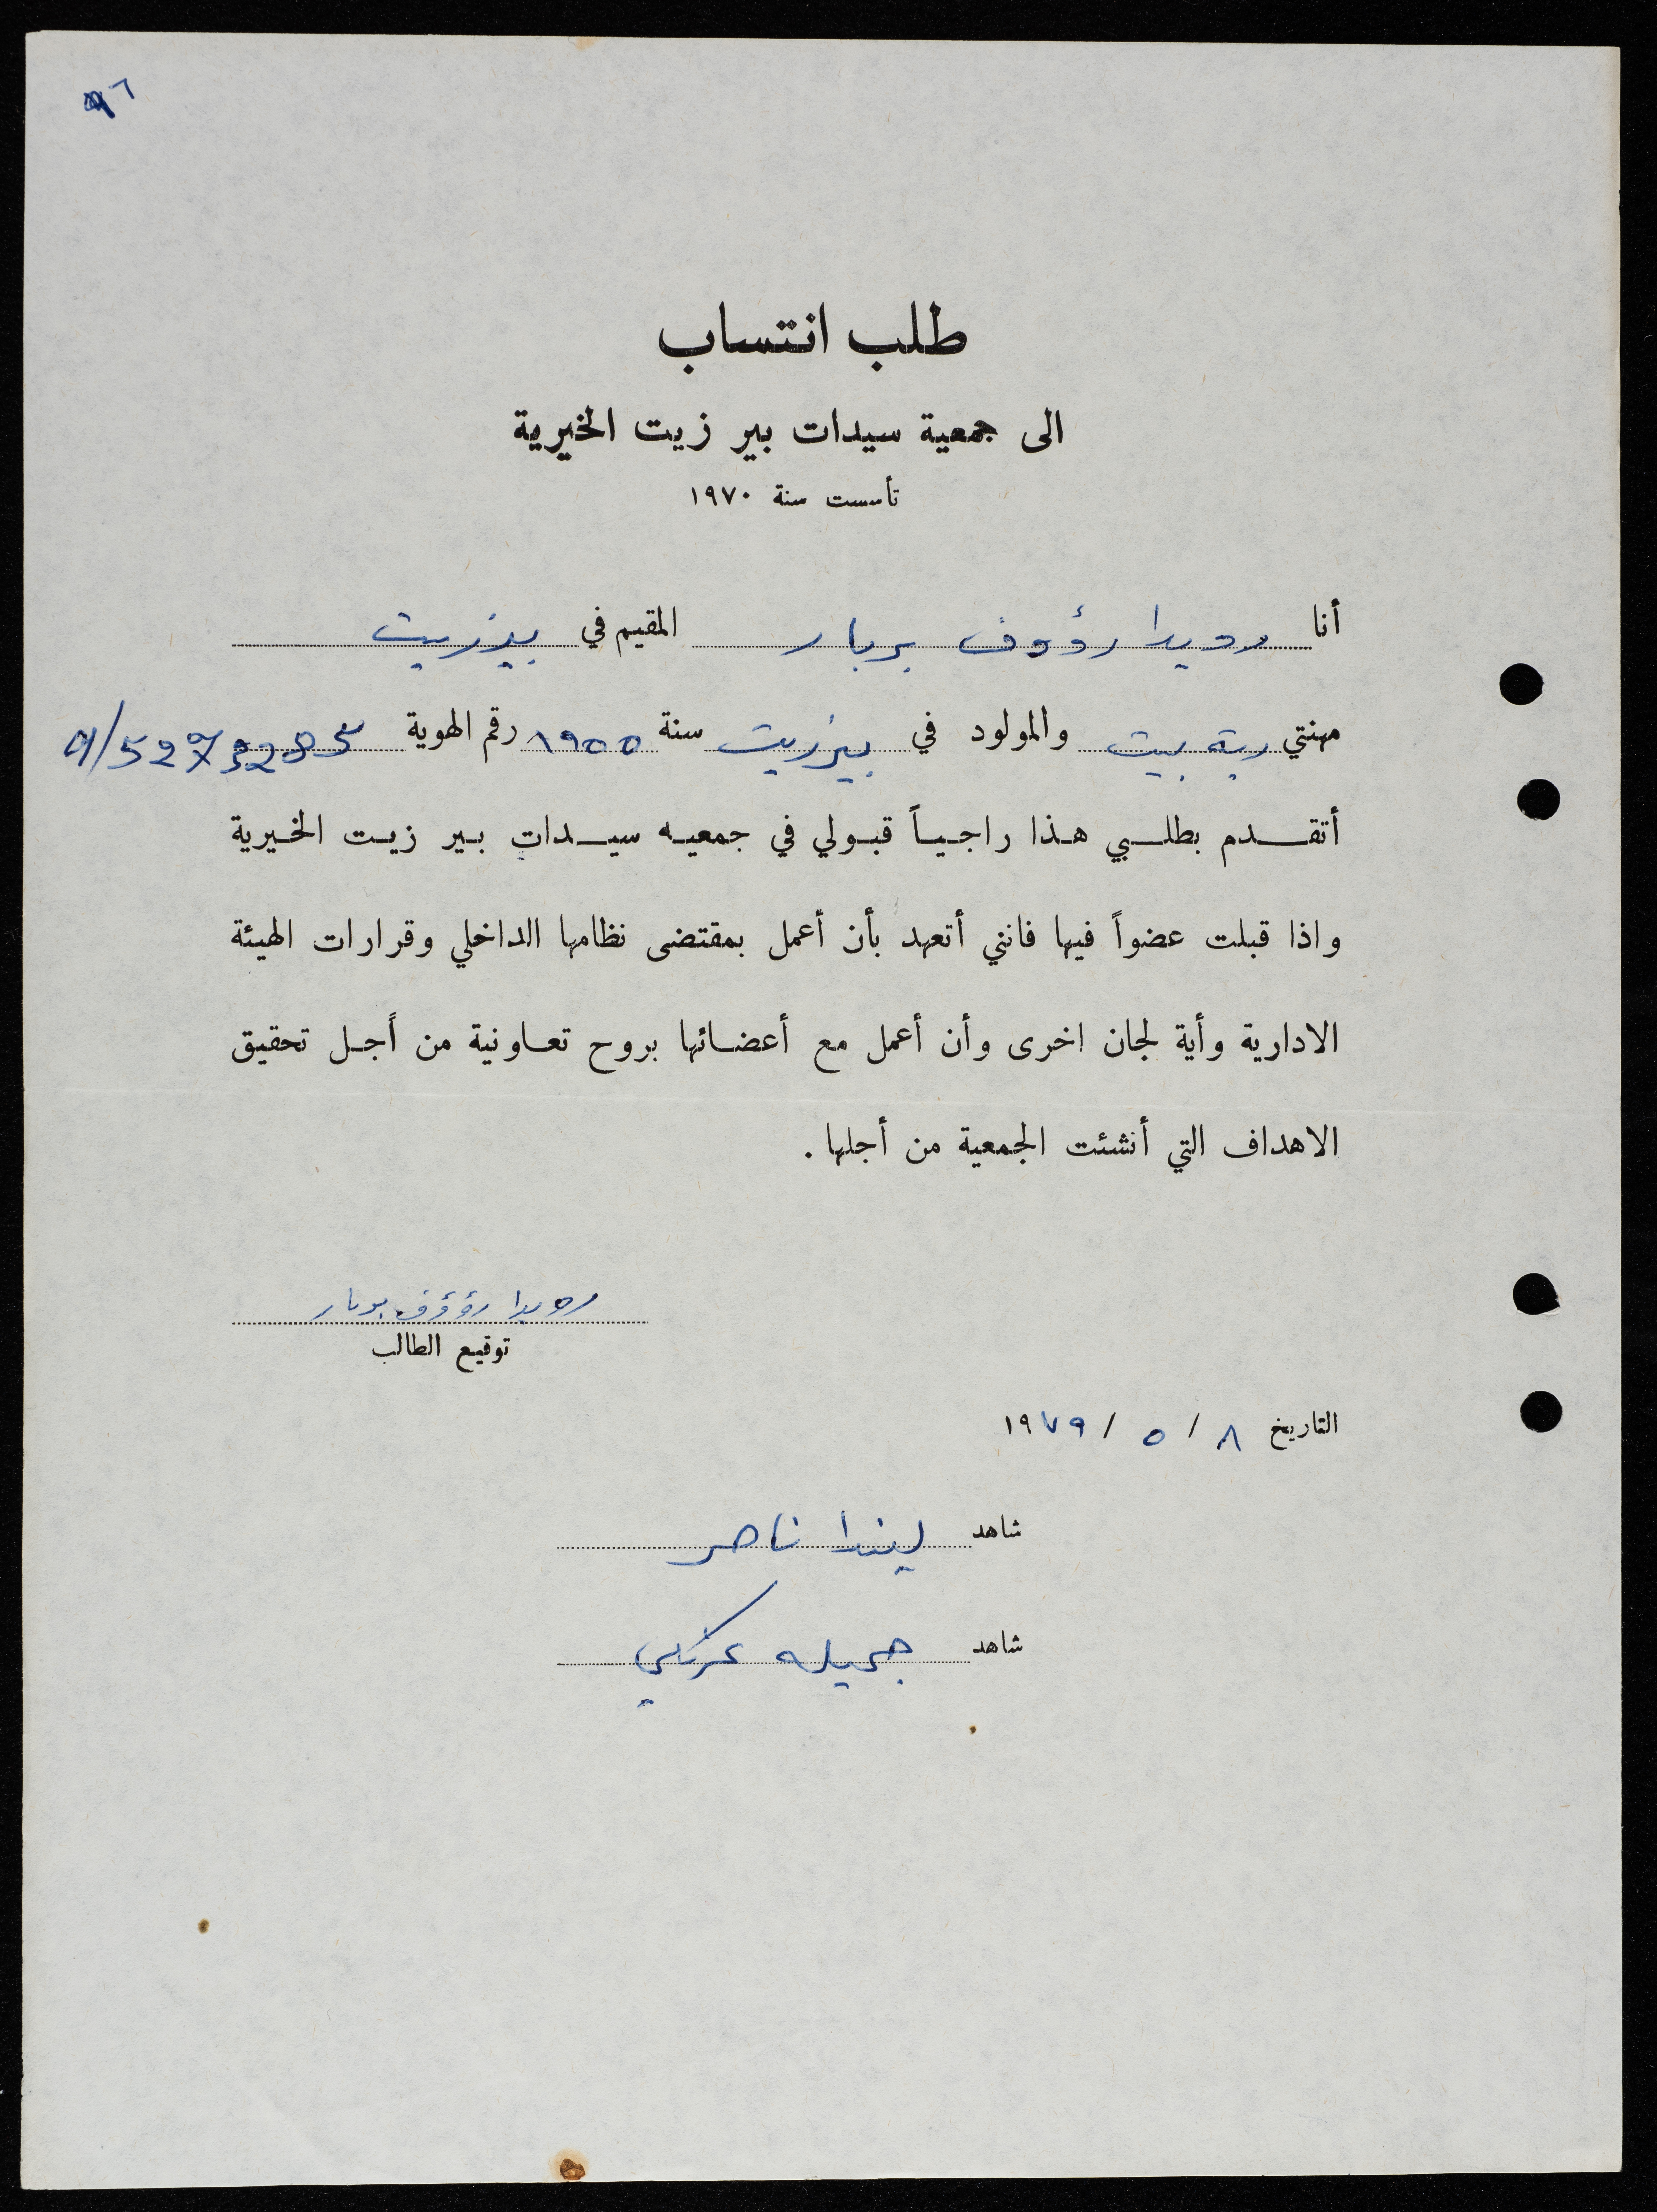 ٩٦
طلب انتساب
الى جمعية سيدات بير زيت الخيرية
تأسست سنة ١٩٧٠
أنا رويدا رؤوف بربار المقيم في بيرزيت
مهنتي ربة بيت والمولود في بيرزيت سنة ١٩٥٥ رقم الهوية
أتقدم بطلبي هذا راجياً قبولي في جمعيه سيدات بير زيت الخيرية
واذا قبلت عضواً فيها فانني أتعهد بأن أعمل بمقتضى نظامها الداخلي وقرارات الهيئة
الادارية وأية لجان اخرى وأن أعمل مع أعضائها بروح تعاونية من أجل تحقيق
الاهداف التي أنشئت الجمعية من أجلها .
رويدا رؤوف بربار
توقيع الطالب
التاريخ ٨ / ٥ / ١٩٧٩
شاهد ليندا ناصر
شاهد جميله